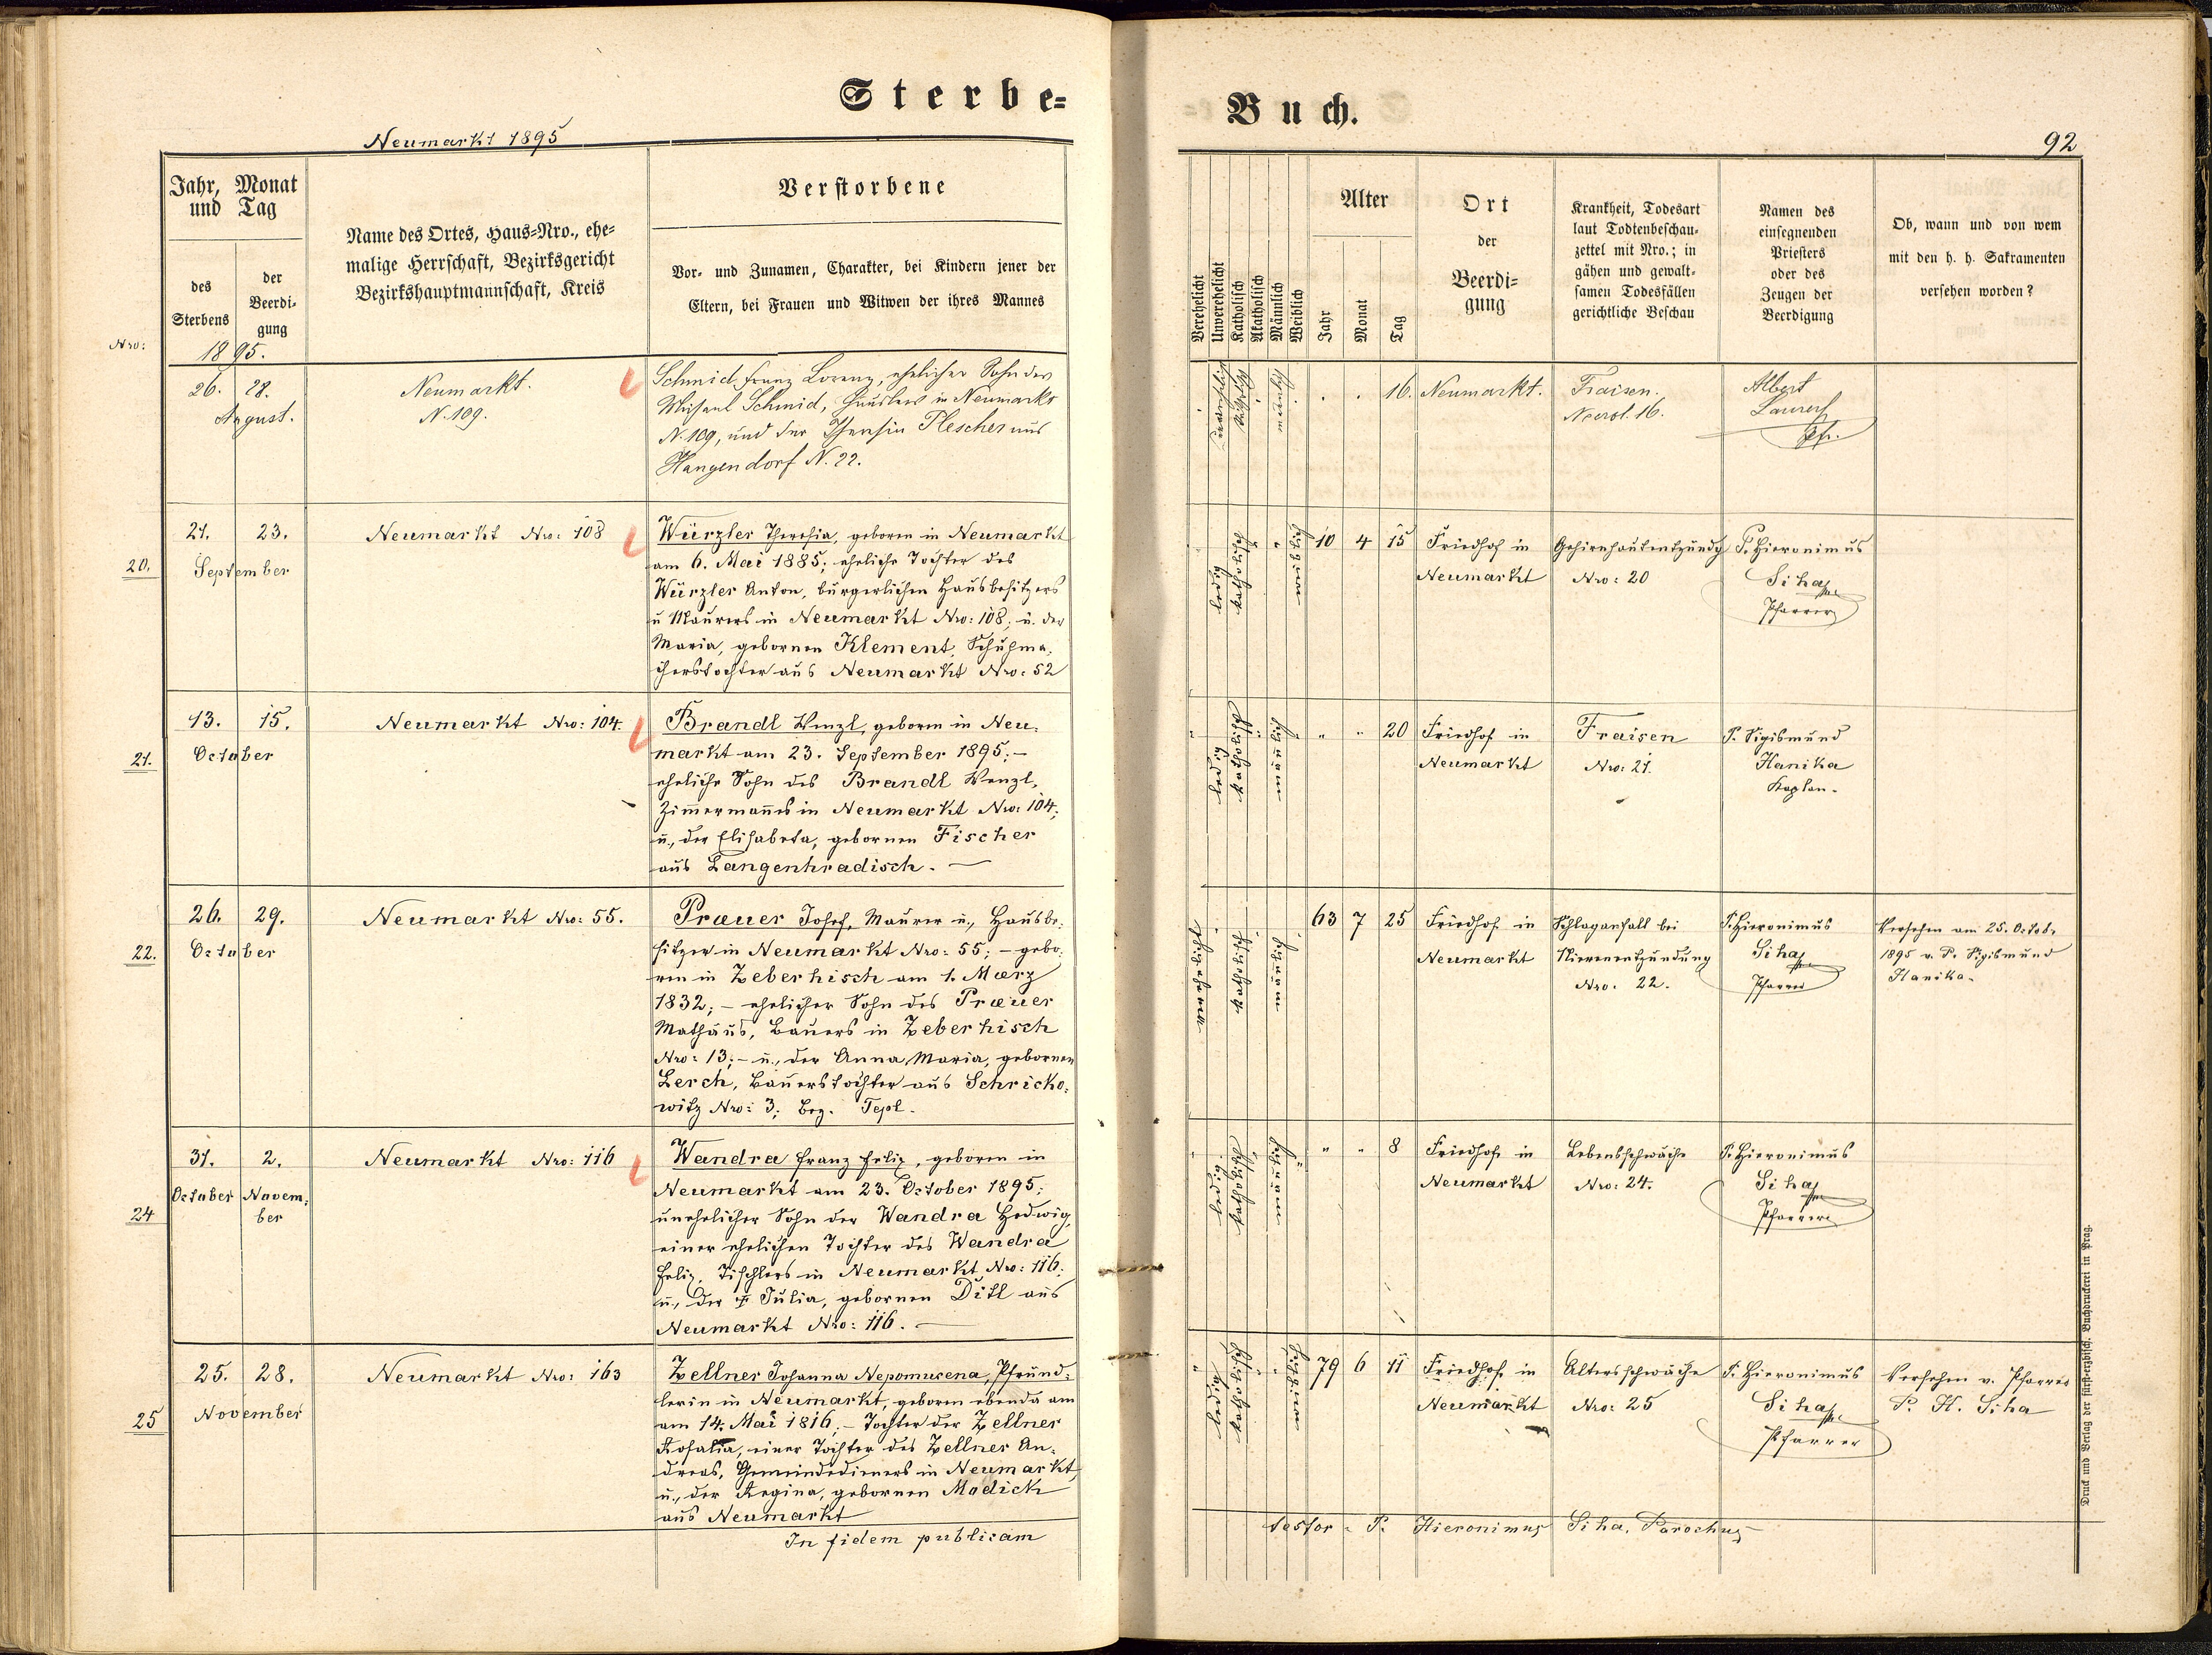 Sterbe=
Neumarkt 1895
Jahr, Monat
und Tag
des
Sterbens
der
Beerdi=
gung
Name des Ortes, Haus=Nro., ehe=
malige Herrschaft, Bezirksgericht
Bezirkshauptmannschaft, Kreis
Verstorbene
Vor= und Zunamen, Charakter, bei Kindern jener der
Eltern, bei Frauen und Witwen der ihres Mannes
Nro:
1895.
26. 28.
August.
Neumarkt.
N. 109.
Schmid Franz Lorenz, ehelicher Sohn des
Schmid, Häuslers in Neumarkt
N. 109, und der Theresia Plescher aus
Hangendorf N. 22.
20.
21. 23.
September
Neumarkt Nro: 108
Würzler Theresia, geboren in Neumarkt
am 6. Mai 1885; eheliche Tochter des
Würzler Anton, bürgerlichen Hausbesitzers
u Maurers in Neumarkt Nro: 108; u. der
Maria, gebornen Klement, Schuhma=
cherstochter aus Neumarkt Nro: 52
21.
13. 15.
October
Neumarkt Nro: 104.
Brandl Wenzl, geboren in Neu=
markt am 23. September 1895; –
eheliche Sohn des Brandl Wenzl,
Zimmermanns in Neumarkt Nro: 104;
u., der Elisabeta, gebornen Fischer
aus Langenhradisch. —
22.
26. 29.
October
Neumarkt Nro: 55.
Præuer Josef, Maurer u., Hausbe=
sitzer in Neumarkt Nro: 55; – gebo=
ren in Zeberhisch am 1. Mærz
1832; – ehelicher Sohn des Præuer
Mathäus, Bauers in Zeberhisch
Nro: 13; – u., der Anna Maria, gebornen
Lerch, Bauerstochter aus Schricko=
witz Nro: 3; Bez. Tepl.
24
31. 2.
October Novem=
ber
Neumarkt Nro: 116
Wandra Franz Felix, geboren in
Neumarkt am 23. October 1895;
unehelicher Sohn der Wandra Hedwig,
einer ehelichen Tochter des Wandra
Felix, Tischlers in Neumarkt Nro: 116;
u., der Julia, gebornen Ditl aus
Neumarkt Nro: 116. —
25
25. 28.
November
Neumarkt Nro: 163
Zellner Johanna Nepomucena, Pfründ=
lerin in Neumarkt, geboren ebenda am
am 14. Mai 1816; – Tochter der Zellner
Rosalia, einer Tochter des Zellner An=
dreas, Gemeindedieners in Neumarkt,
u., der Regina, gebornen Madich
aus Neumarkt
In fidem publicam
Buch.
92
Verehelicht
Unverehelicht
Katholisch
Akatholisch
Männlich
Weiblich
Alter
Jahr
Monat
Tag
Ort
der
Beerdi=
gung
Krankheit, Todesart
laut Todtenbeschau=
zettel mit Nro.; in
gähen und gewalt=
samen Todesfällen
gerichtliche Beschau
Namen des
einsegnenden
Priesters
oder des
Zeugen der
Beerdigung
Ob, wann und von wem
mit den h. h. Sakramenten
versehen worden?
16. Neumarkt.
Fraisen.
16.
Albert
Pfr.
ledig
katholisch
10 4 15
Friedhof in
Neumarkt
Gehirnhautentzündg
Nro: 20
P. Hieronimus
Siha
Pfarrer
ledig
katholisch
" " 20
Friedhof in
Neumarkt
Fraisen
Nro: 21.
P. Sigismund
Hanika
Kaplan.
katholisch
63 7 25
Friedhof in
Neumarkt
Schlaganfall bei
Nierenentzündung
Nro. 22.
P. Hieronimus
Siha
Pfarrer
Versehen am 25. Octob.
1895 v. P. Sigismund
Hanika.
ledig
katholisch
" " 8
Friedhofe in
Neumarkt
Lebensschwäche
Nro: 24.
P. Hieronimus
Siha
Pfarrer
ledig
katholisch
79 6 11
Friedhofe in
Neumarkt
Altersschwäche
Nro: 25
P. Hieronimus
Siha
Pfarrer
Versehen v. Pfarrer
P. H. Siha
testor P. Hieronimus Siha, Parochus
Druck und Verlag der fürst=erzbisch. Buchdruckerei in Prag.